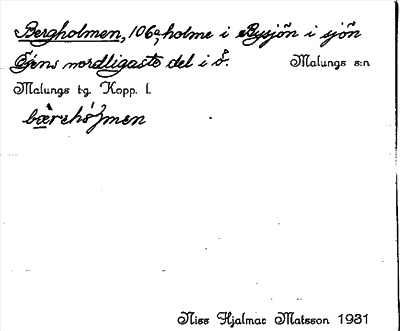 Bergholmen, 106a, holme i Bysjön i sjön
Öjens nordligaste del i ö. Malungs s:n
Malungs tg. Kopp. l.
Niss Hjalmar Matsson 1931